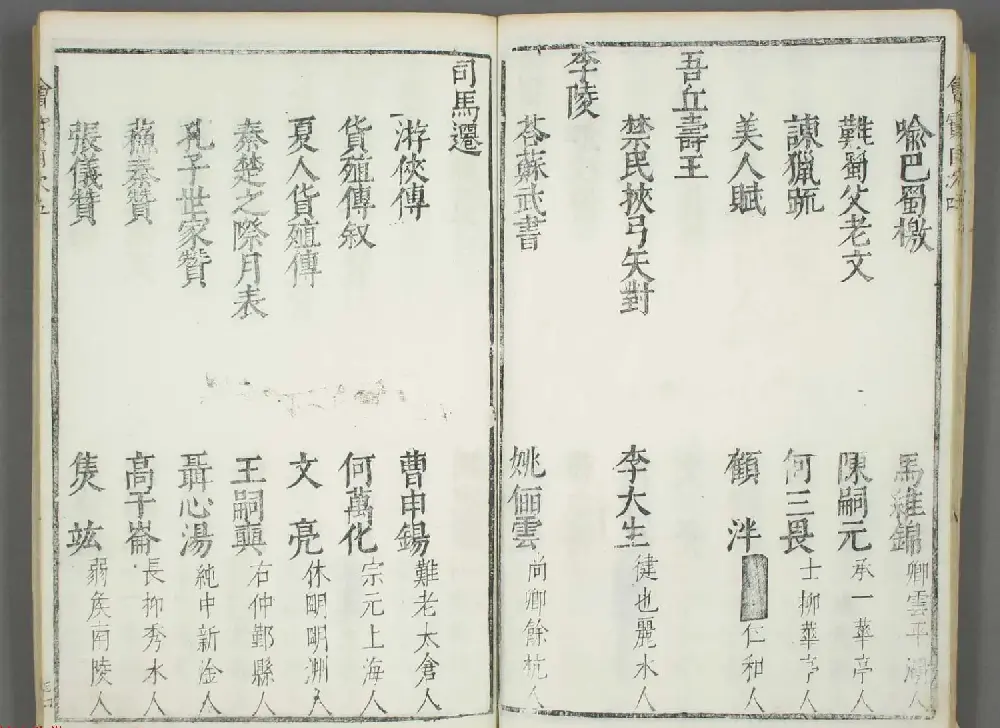 喻巴蜀檄 馬維錦 卿雲平湖人
難蜀父老文 陳嗣元 承一華亭人
諫獵疏 何三畏 士抑華亭人
美人賦 顧泮 仁和人
吾丘壽王
禁民挾弓矢對 李大生 健也麗水人
李陵
荅蘇武書 姚俪雲 尚卿餘杭人
司馬遷
游俠傳 曹申錫 難老太倉人
貨殖傳叙 何萬化 宗元上海人
夏人貨殖傳 文亮 休明明淵人
秦楚之際月表 王嗣真 右仲鄞縣人
孔子世家贊 聶心湯 純中新淦人
蘇秦贊 高千崙 長抑秀水人
張儀贊 竑 弱矦南陵人